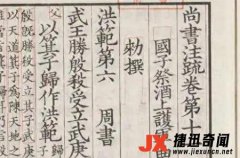 尚書注疏卷第十
國子祭酒上護軍曲
勑撰
洪範第六 周書
武王勝殷殺受立武庚
以箕子歸作洪範
JX 捷迅奇闻